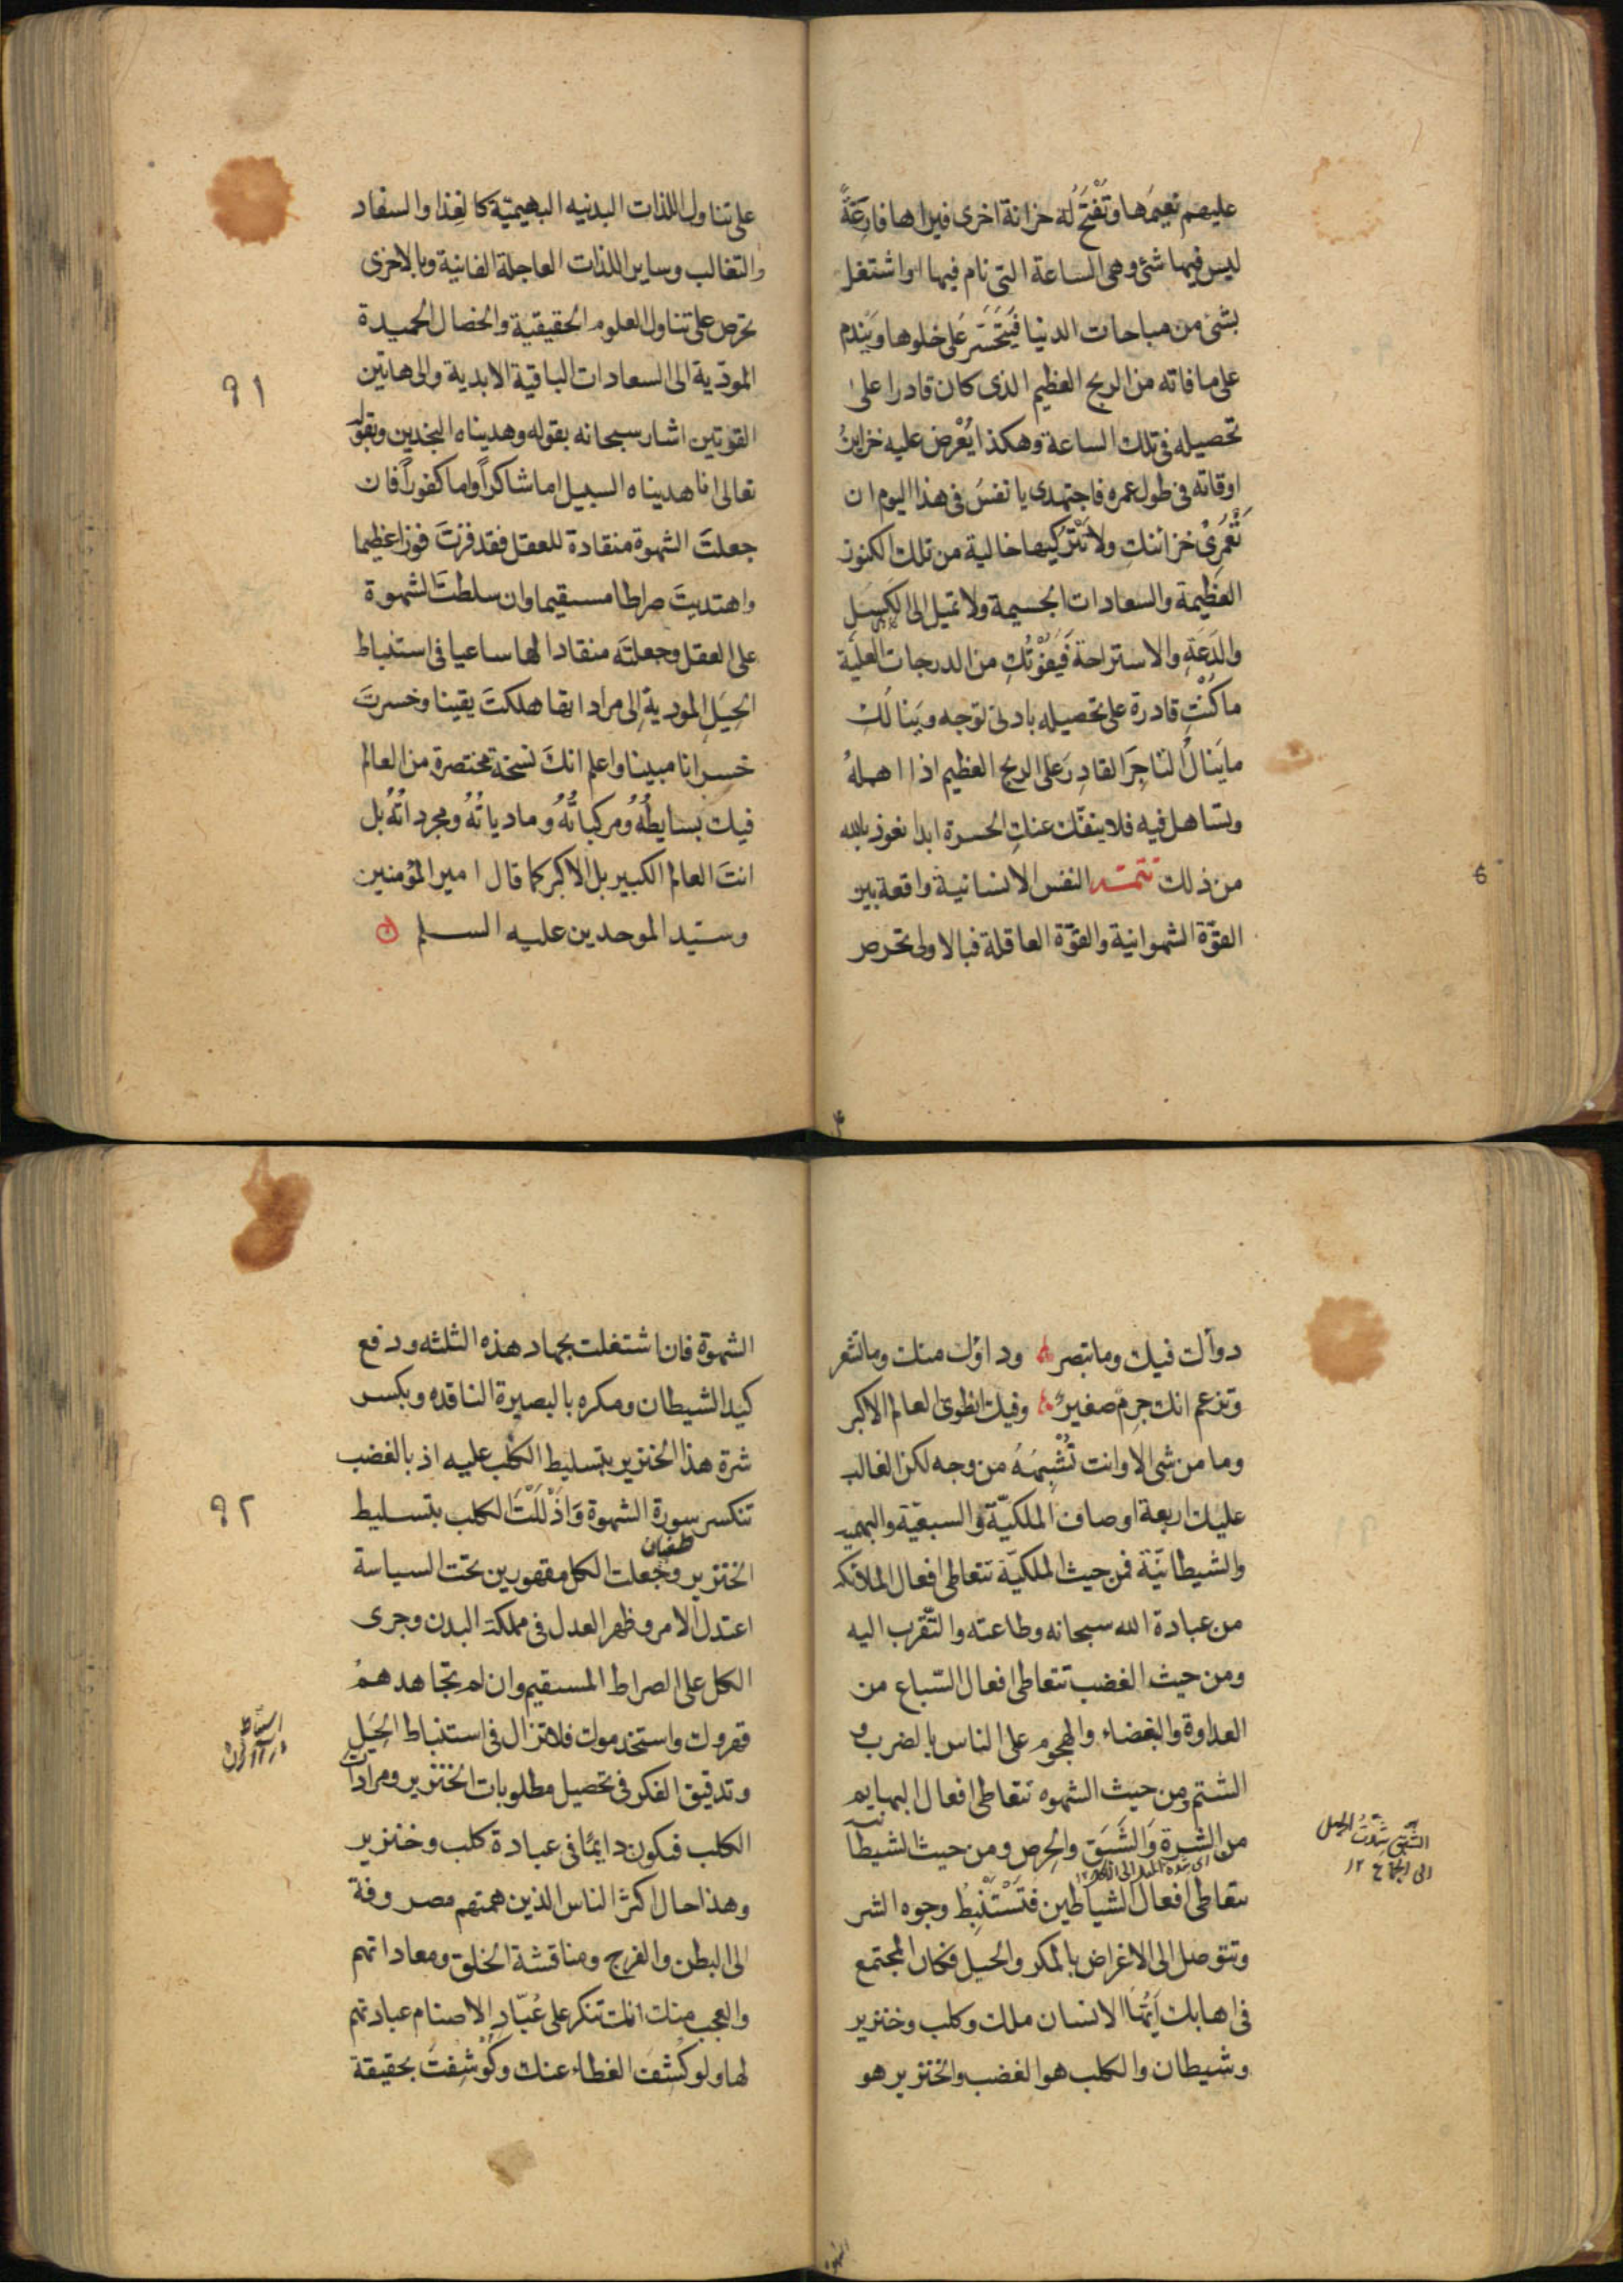 عليهم نعيمَها وتُفْتَحُ لَه خزانة اخرى فيراها فارِغَةً
ليس فيها شئ وهى الساعة التى نام فيها او اشتغل
بشئ من مباحات الدنيا فَيَتَحَسَّر عَلى خلوها ويَندم
على ما فاته من الربح العظيم الذى كان قادرا على
تحصيله فى تلك الساعة وهكذا يُعْرض عليه خزاينُ
اوقاته فى طول عمره فاجتهدى يا نفسُ فى هذا اليوم ان
تَعْمُرِىْ خزائنكِ ولا تَتْرُكيها خالية من تلك الكنوز
العظيمة والسعادات الجسيمة ولا تميل الى الكسَلِ
والدَعَةِ والاستراحة فَيَفُوْتُكِ من الدرجات العليّة
ما كُنْتِ قادرة على تحصيله بادنى توجه ويَنالُكِ
ما يَنالُ التاجِرَ القادِرَ على الربح العظيم اذا اهملهُ
وتساهل فيه فلا ينفك عنكِ الحسرة ابدا نعوذ بالله
من ذلك تتمـّـة النفس الانسانية واقعة بين
القوّة الشهوانية والقوّة العاقلة فبالاولى تحرص
على تناول اللذات البدنيه البهيميّة كالغذا والسفاد
والتغالب وساير اللذات العاجلة الفانية وبالاخرى
تحرص على تناول العلوم الحقيقية والخصال الحميدة
الموذية الى السعادات الباقية الابدية والى هاتين
٩١
القوتين اشار سبحانه بقوله وهديناه النجدين وبقوله
تعالى انا هديناه السبيل اما شاكراً واما كفوراً فان
جعلتَ الشهوة منقادة للعقل فقد فزتَ فوزا عظيما
واهتديتَ صراطا مستقيما وان سلطتَ الشهوة
على العقل وجعلتَه منقادا لها ساعيا فى استنباط
الحِيَلِ المودية الى مراداتها هلكتَ يقينا وخسرتَ
خسرانا مبينا واعلم انكَ نسخة مختصرة من العالم
فيك بسايطُهُ ومركباتُهُ ومادياتُهُ ومجرداتُهُ بل
انتَ العالم الكبير بل الاكبر كما قال امير المؤمنين
وسيّد الموحدين عليه الســلم
دوآك فيك وما تبصر وداؤك منك وما تشعر
وتزعم انك جرمٌ صغير وفيك انطوى العالم الاكبر
وما من شئ الا وانت تُشْبِهُهُ من وجه لكن الغالب
عليك اربعة اوصاف الملكيّة والسبعيّة والبهيميه
والشيطانيّة فمن حيث الملكيّة تتعاطى افعال الملائكه
من عبادة الله سبحانه وطاعته والتقرب اليه
ومن حيث الغضب تتعاطى افعال السّباع من
العداوة والبغضاء والهجوم على الناس بالضرب و
الشتم ومن حيث الشهوه تتعاطى افعال البهايم
من الشره والشَبَق والحِرص ومن حيث الشيطانية
اى شدة الميل الى
الشبق شدّت الميل
الى الجماع ١٢
تتعاطى افعال الشياطين فتَسْتَنْبِطُ وجوه الشر
وتتوصل الى الاغراض بالمكر والحيل فكان المجتمع
فى اهابك ايّها الانسان ملك وكلب وخنزير
وشيطان والكلب هو الغضب والخنزير هو
الشهوة فان اشتغلت بجهاد هذه الثلثه ودفع
كيد الشيطان ومكره بالبصيرة الناقده وبكسر
شرة هذا الخنزير بتسليط الكلب عليه اذ بالغضب
تنكسر سورة الشهوة وَاَذْلَلْتَ الكلب بتسليط
طغيان
٩٢
الخنزير وجعلت الكل مقهورين تحت السياسة
اعتدل الامر وظهر العدل فى مملكة البدن وجرى
الكل على الصراط المستقيم وان لم تجاهدهم
قهروك واستخدموك فلا تزال فى استنباط الحِيَل
وتدقيق الفكر فى تحصيل مطلوبات الخنزير ومرادات
الكلب فيكون دايمًا فى عبادة كلب وخنزير
وهذا حال اكثر الناس الذين همتهم مصروفة
الى البطن والفرج ومناقشة الخلق ومعاداتهم
والعجب منك انك تنكر على عُبّادِ الاصنام عبادتهم
لها ولو كُشِفَ الغطاء عنك وكُوْشِفْتَ بحقيقة